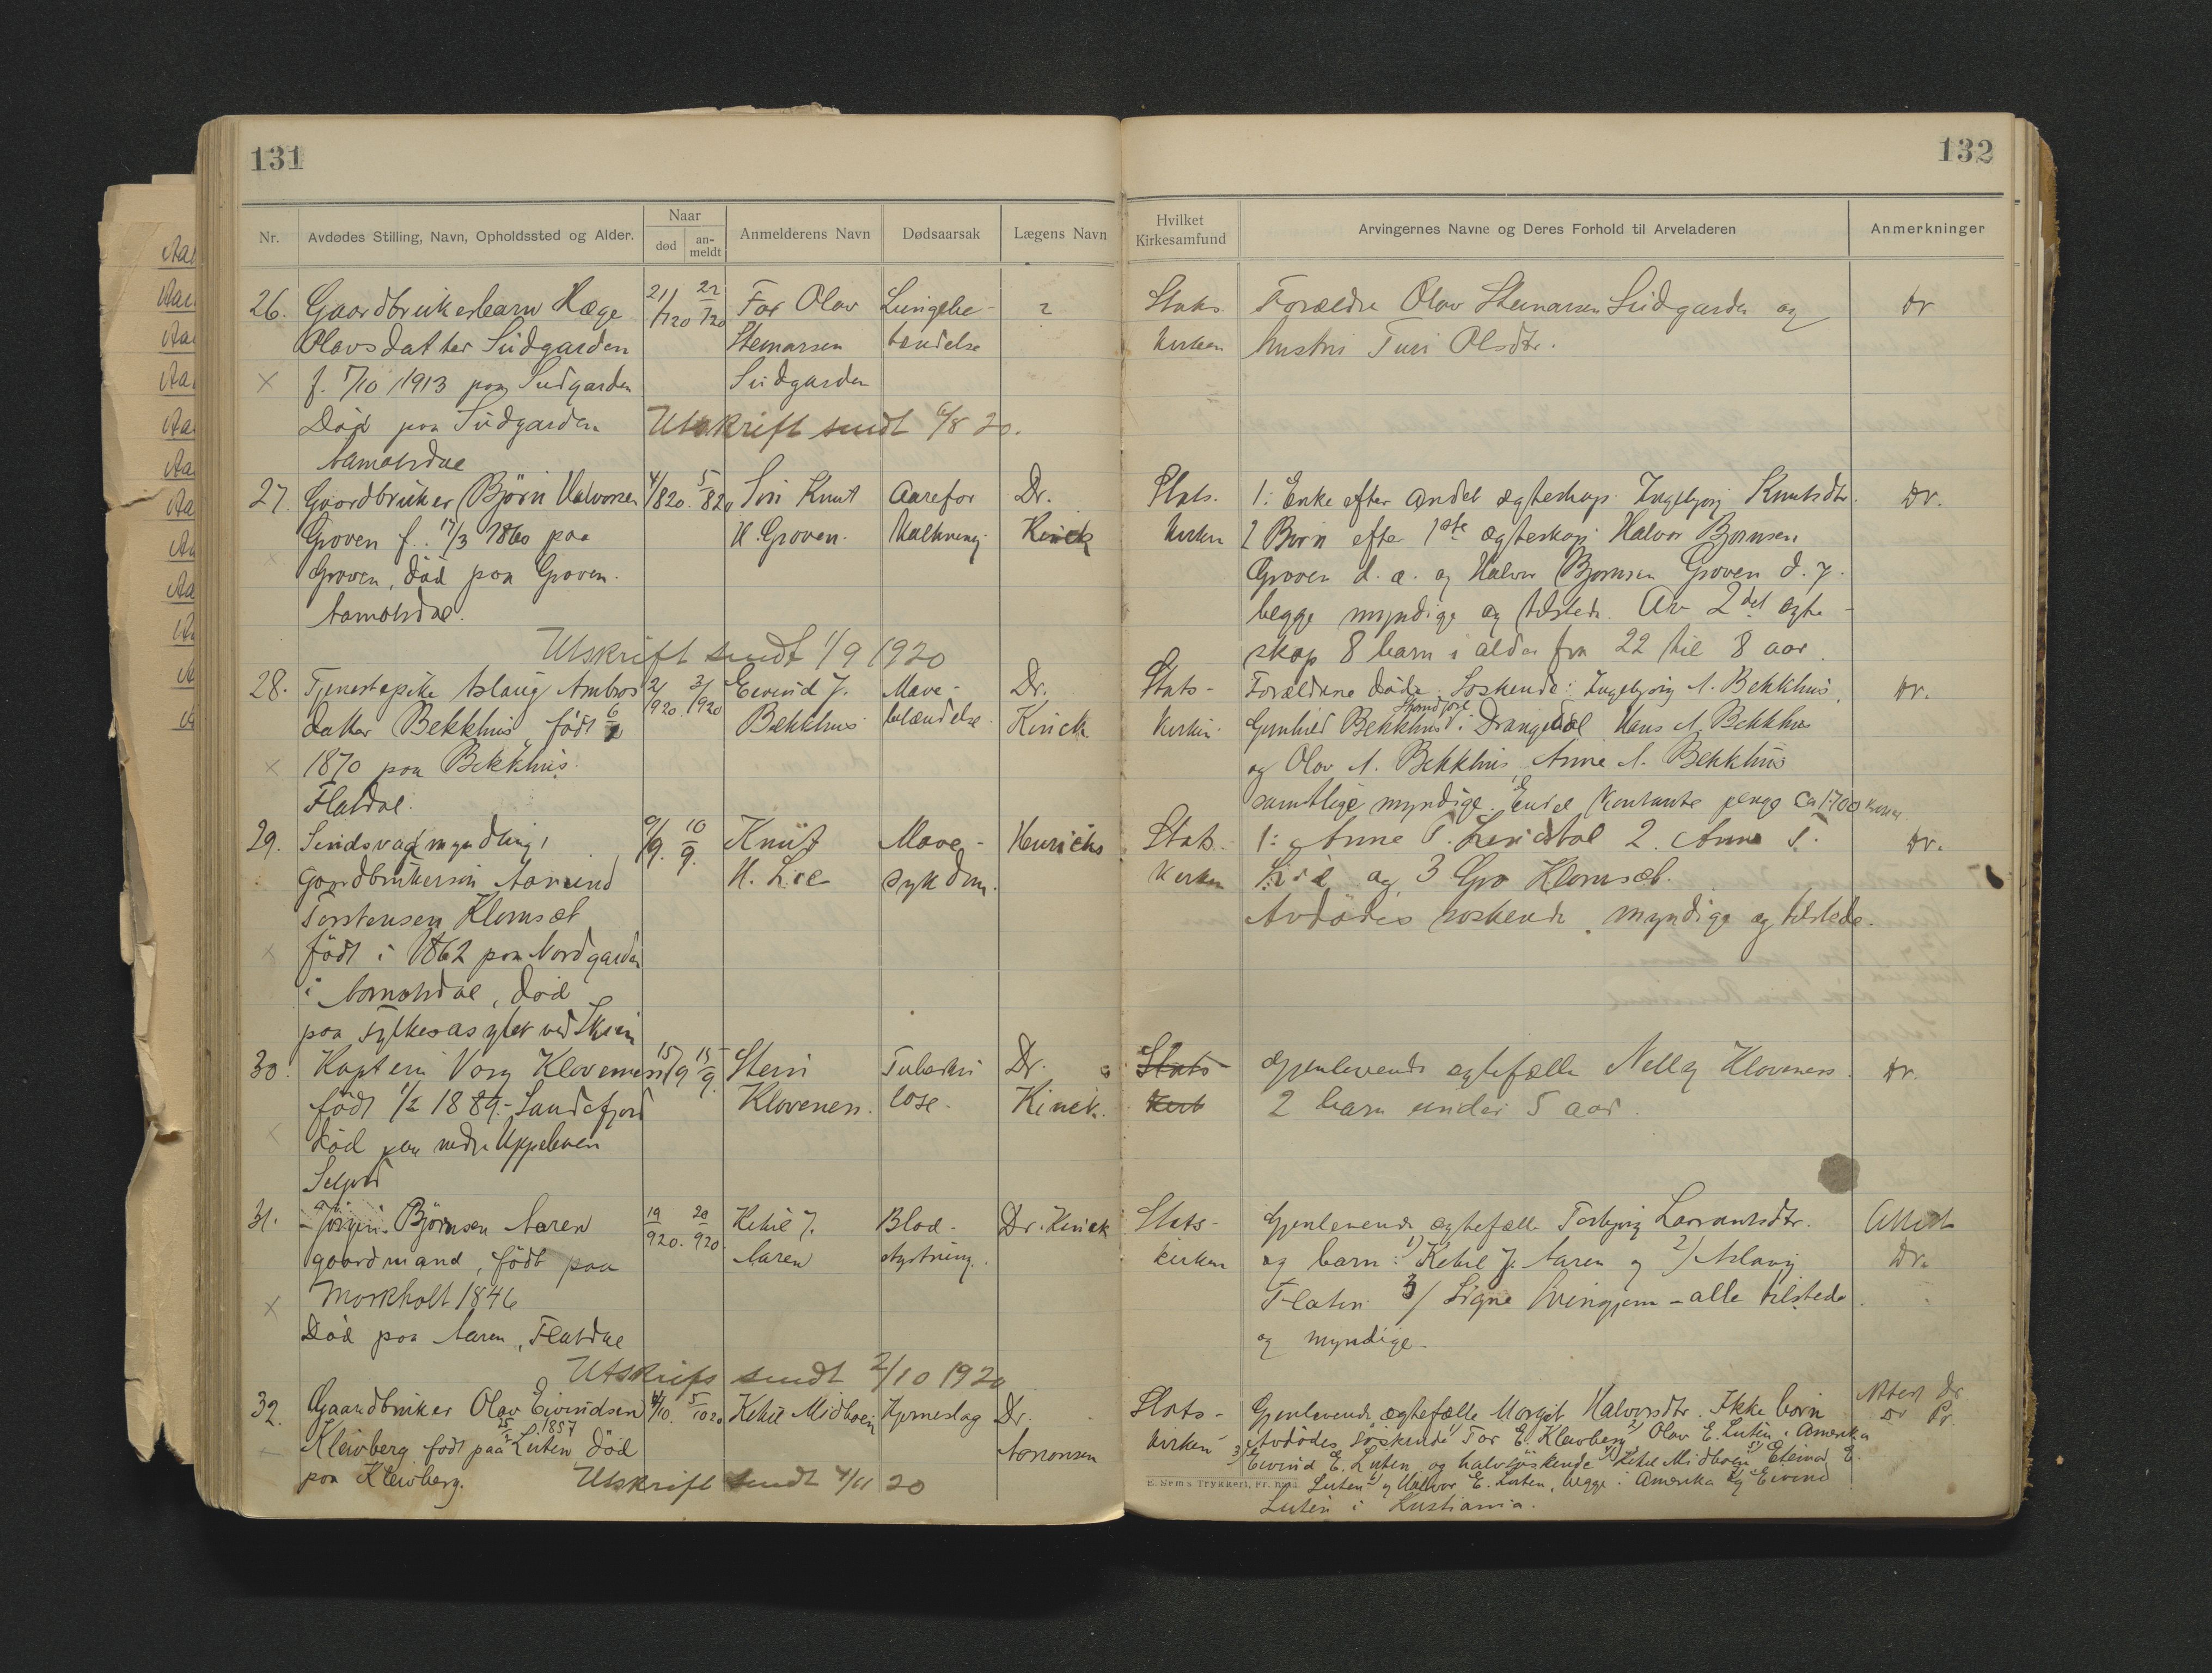 131
Nr.
Avdødes Stilling, Navn, Opholdssted og Alder.
Naar
død
an-
meldt
Anmelderens Navn
Dødsaarsak
Lægens Navn
26. Gaardbrukerbarn Hæge
Olavsdatter Sudgarden
f. 7/10 1913 paa Sudgarden
Død paa Sudgarden
Aamotsdal
21/7 20 22/7 20
Far Olav
Steinarsen
Sudgarden
Lungebe-
tændelse
Utskrift sendt 6/8 20.
27. Gaardbruker Bjørn Halvorsen
Groven f. 17/3 1860 paa
Groven, død paa Groven.
Aamotsdal.
4/8 20. 5/8 20
Søn Knut
H. Groven.
Aarefor
kalkning
Dr.
Kinck
Utskrift sendt 1/9 1920
28. Tjenestepike Aslaug Ambros
datter Bekkhus født 6
1870 paa Bekkhus.
Flatdal.
2/9 20. 3/9 20
Eivind J.
Bekkhus
Mave-
betændelse.
Dr.
Kinck
29. Sindsvag myndling,
gaardbrukersøn Aamund
Torstensen Klomset
født i 1862 paa Nordgarden
i Aamotsdal, død
paa sykeasylet ved Skien
9/9. 10/9.
Knut
H. Lie
Mave-
sykdom.
Henrichs
30. Kaptein Vorg Klovenes
født 1/2 1889. Sandefjord
død paa nedre Uppeboen
Seljord
15/9 15/9.
Stein
Klovenes.
Tuberku
lose.
Dr.
Kinck.
31. Jørgen Bjørnsen Aaren
gaardmand, født paa
Morkholt 1846
Død paa Aaren, Flatdal
19/9 20. 20/9 20.
Ketil J.
Aaren
Blod-
styrtning.
Dr. Kinck
Utskrift sendt 2/10 1920
32. Gaardbruker Olav Eivindsen
Kleivberg født paa Luten 1857 død
paa Kleivberg.
4/10. 5/10 20
Ketil Midboen
Hjerneslag
Dr.
Aaronsen
Utskrift sendt 4/11 20
132
Hvilket
Kirkesamfund
Arvingernes Navne og Deres Forhold til Arveladeren
Anmerkninger
Stats
kirken
Forældre Olav Steinarsen Sudgarden og
hustru Turi Olsdtr.
Dr
Stats.
kirken
1: Enke efter andet ægteskap: Ingebjørg Knutsdtr.
2 Børn efter 1ste ægteskap: Halvor Bjørnsen
Groven d. æ. og Halvor Bjørnsen Groven d. y.
begge myndige og tilstede. Av 2det ægte-
skap 8 barn i alder fra 22 til 8 aar.
Dr.
Stats-
kirken
Forældrene døde. Søskende: Ingebjørg A. Bekkhus,
Gunhild Bekkhus i Drangedal Hans A. Bekkhus
og Olav A. Bekkhus, Anne A. Bekkhus
samtlige myndige. Endel kontante penge Ca 1700 kroner
Dr.
Stats-
kirken
1: Anne T. 2. Anne T.
Lie og 3 Gro Klomset.
Avdødes søskende, myndige og tilstede.
Dr.
Stats
Kirk
Gjenlevende ægtefælle Nelly Klovenes.
2 barn under 5 aar.
Dr.
Stats-
kirken
Gjenlevende ægtefælle Torbjørg Lavrantsdtr.
og barn: 1) Ketil J. Aaren og 2/ Aslaug
Flatin 3/ Signe Kvingjem - alle tilstede
og myndige.
Attest
Dr.
Stats-
kirken
Gjenlevende ægtefælle Margit Halvorsdtr. Ikke børn
Avdødes søskende 1) Tor E. Kleivberg 2) Olav E. Luten i Amerika
3) Eivind E. Luten og halvsøskende 4) Ketil Midboen 5) Steinar E.
Luten 6) og Halvor E. Luten, begge i Amerika og Eivind
Luten i Kristiania.
Attest Dr
E. Sem's Trykkeri, Fr.hald